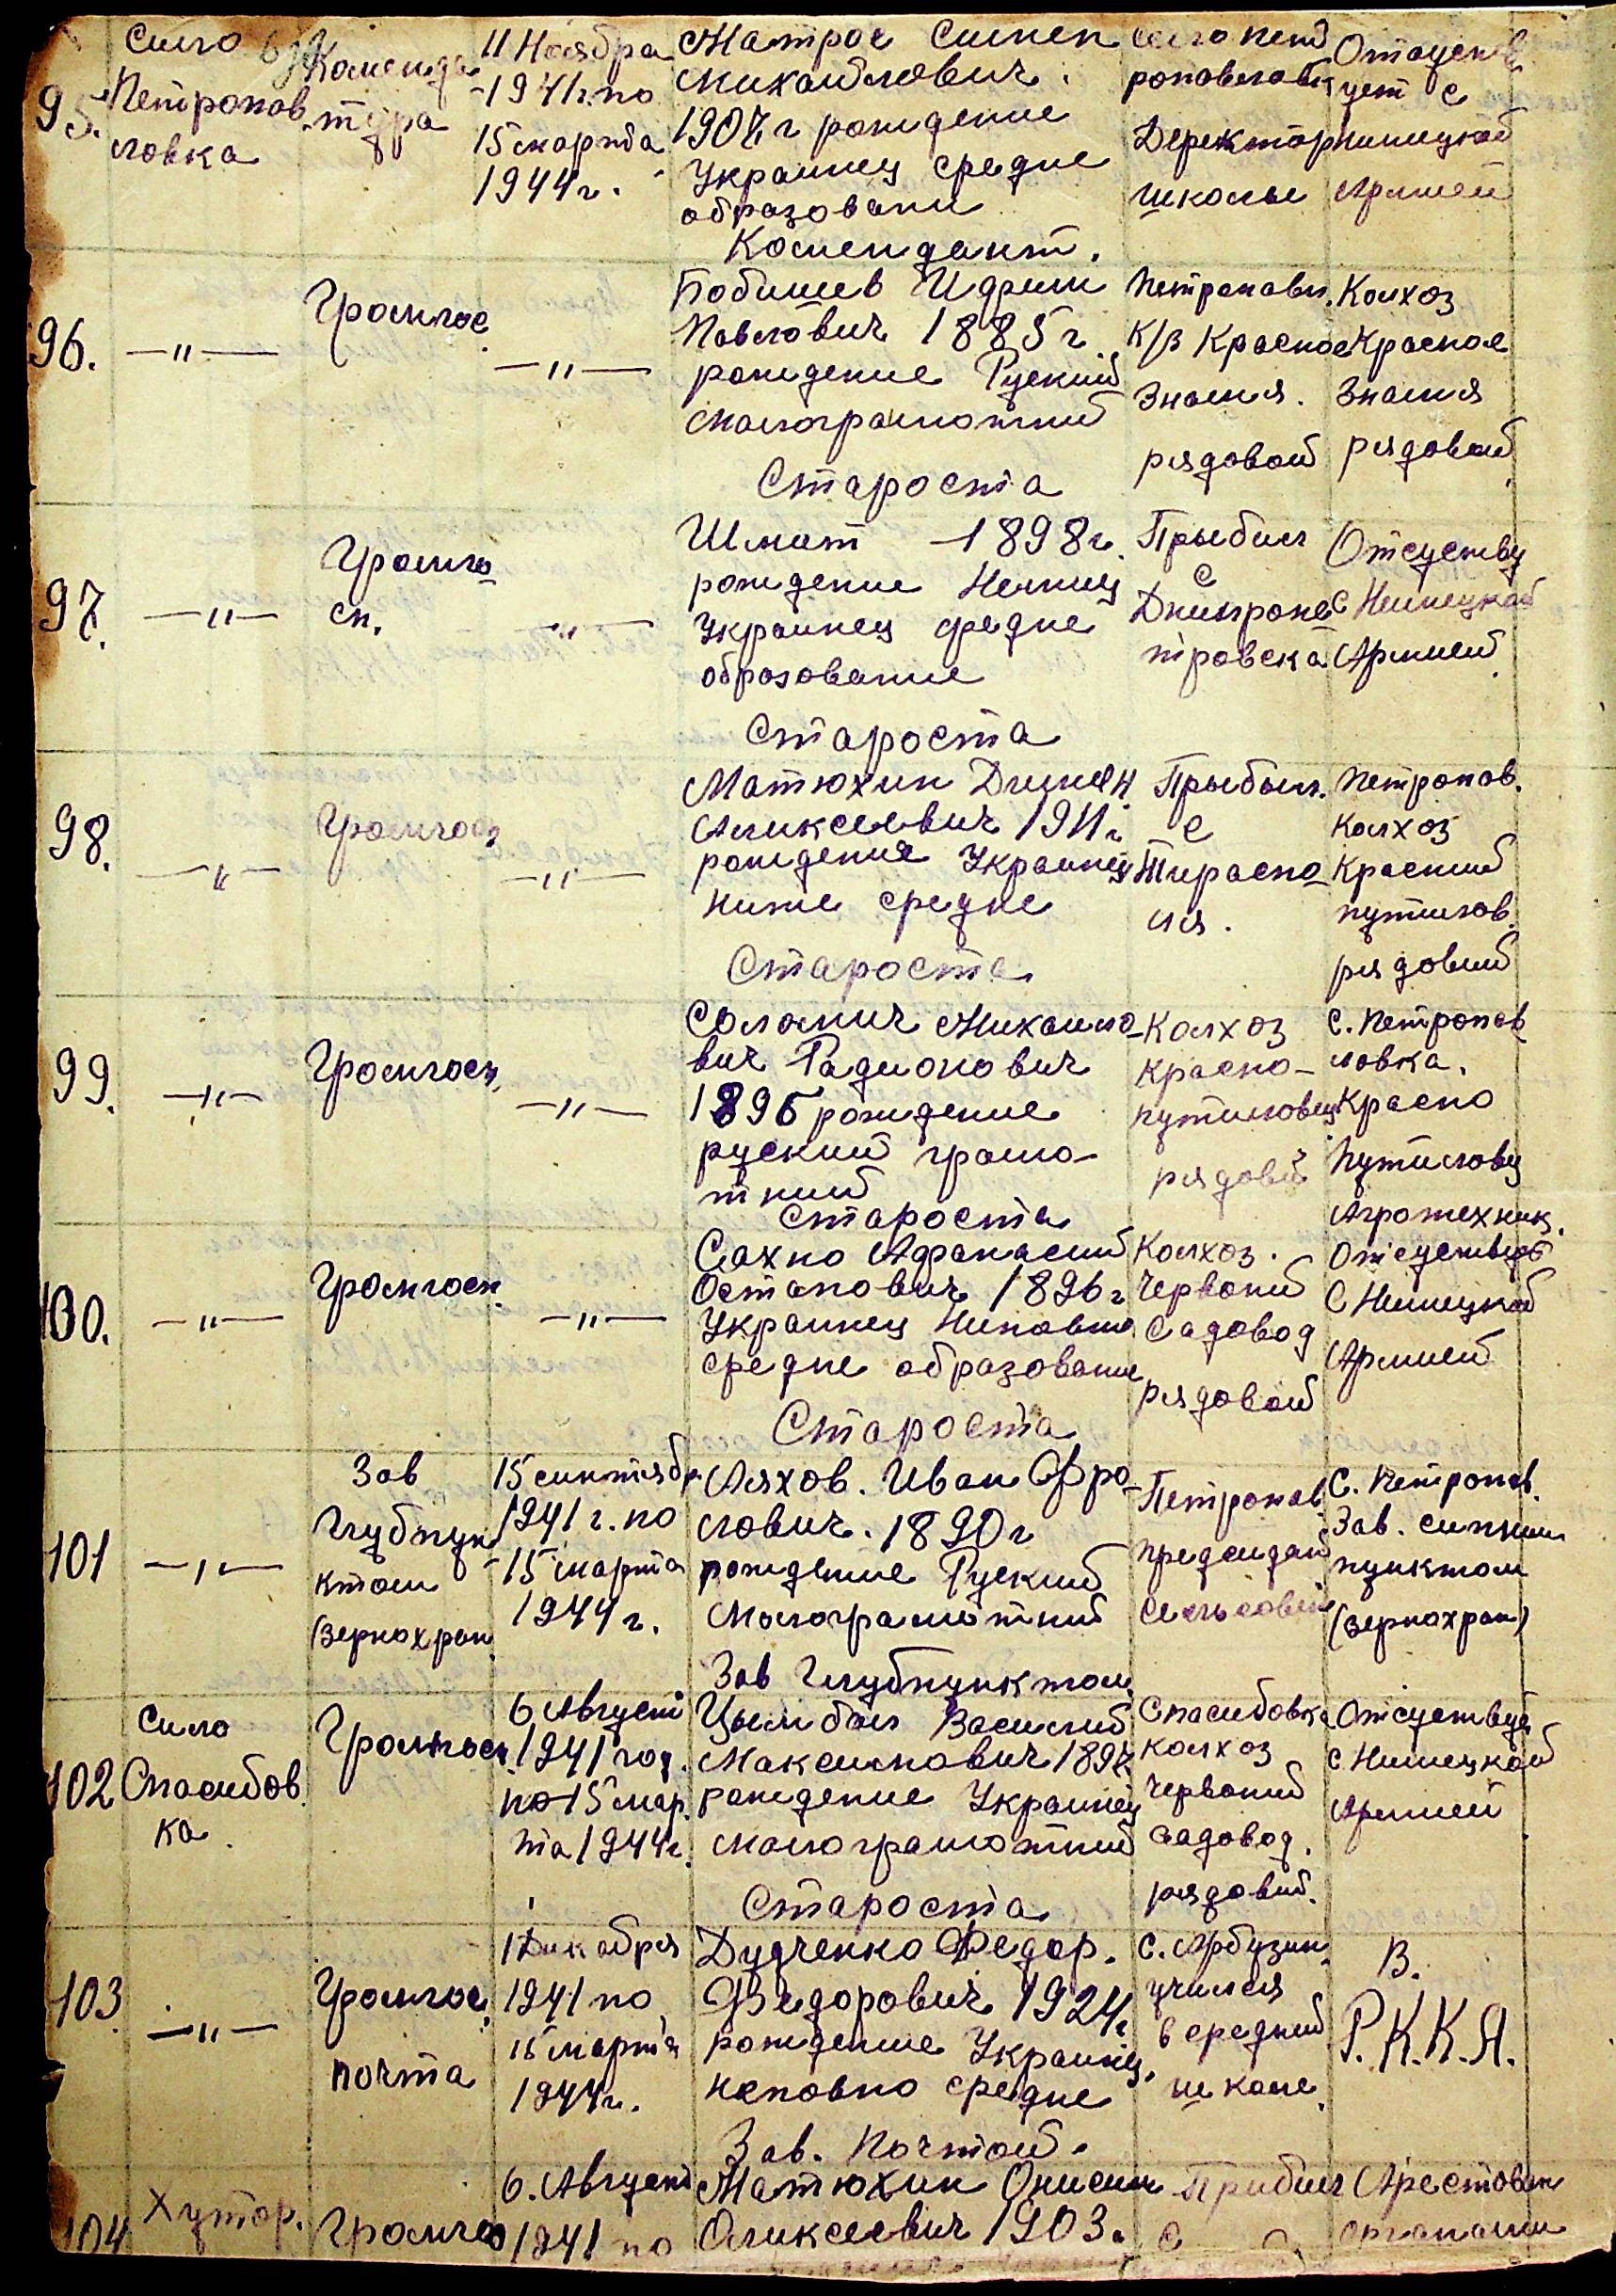 95. Сило Петропав
ловка
Коменда
тура
11 Ноября
1941г. по
15 марта
1944г.
Матрос Симен
Михайлович.
1907 г рождение
Украинец средне
образовани
Комендант.
село Пет
ропавловк
Деректор
школы
Отступ
с
нимецкой
Армией
96. —"— Громгос. —"—
Бабишев
Павлович 1885 г.
рождение Руский
малограмотний
Староста
Петропавл.
к/з Красное
Знамя.
рядовой
Колхоз
Красное
Знамя
рядовой
97. —"— Громго
сп. —"—
Шмат 1898г.
рождение Немиец
Украинец средне
образование
Староста
Прыбил
с
Днипропе
тровска
Отсуству
с Немецкой
Армией.
98. —"— Громгосп —"—
Матюхин Димян
Аликсеевич 1911г.
рождения Украинец
ниже средне
Староста
Прыбыл.
с
Тираспо
ля.
Петропав.
Колхоз
Красний
путилов.
рядовий
99. —"— Громгосп. —"—
Саламич Михаило
вич Радионович
1896 рождение
руский грамо-
тний
Староста
Колхоз
красно-
путиловец
рядовй
с. Петропав
ловка.
Красно
Путиловец
Агротехник.
100. —"— Громгосп. —"—
Сахно Афанасий
Остапович 1896г
Украинец Ниповно
средне образование
Староста
Колхоз.
Червоний
Садовод
рядовой
Отсуствует
с Нимецкой
Армией
101 —"— Зав
Глубпун
ктом
(Зернохран.
15 синтября
1941 г. по
15 марта
1944 г.
Ляхов. Иван Фро
лович. 1890г
рождение Руский
Малограмотний
Зав Глубпунктом.
Петропав.
председат
Сельсовет
с. Петропав.
Зав. сипним
пунктом
(Зернохран)
102 Сило
Спасибов
ка.
Громгосп.
6 Август
1941 год.
по 15 мар.
та 1944г.
Цымбал Василий
Максимович 1897.
рождение Украинец
малограмотний
Староста
Спасибовка
колхоз
Червоний
садовод.
рядовий.
Отсуствует
с Нимецкой
Армией
103. —"— Громгос.
почта
1 Дикабря
1941 по
15 марта
1944г.
Дудченко Федор.
Федорович 1924г
рождение Украинец.
неповно средне
Зав. Почтой.
с. Арбузин.
учился
в средний
школе.
В.
Р.К.К.А.
104 Хутор. Громго
6. Август
1941 по
Матюхин Онисим
Аликсеевич 1903г
Прибил
с
Арестован
органами